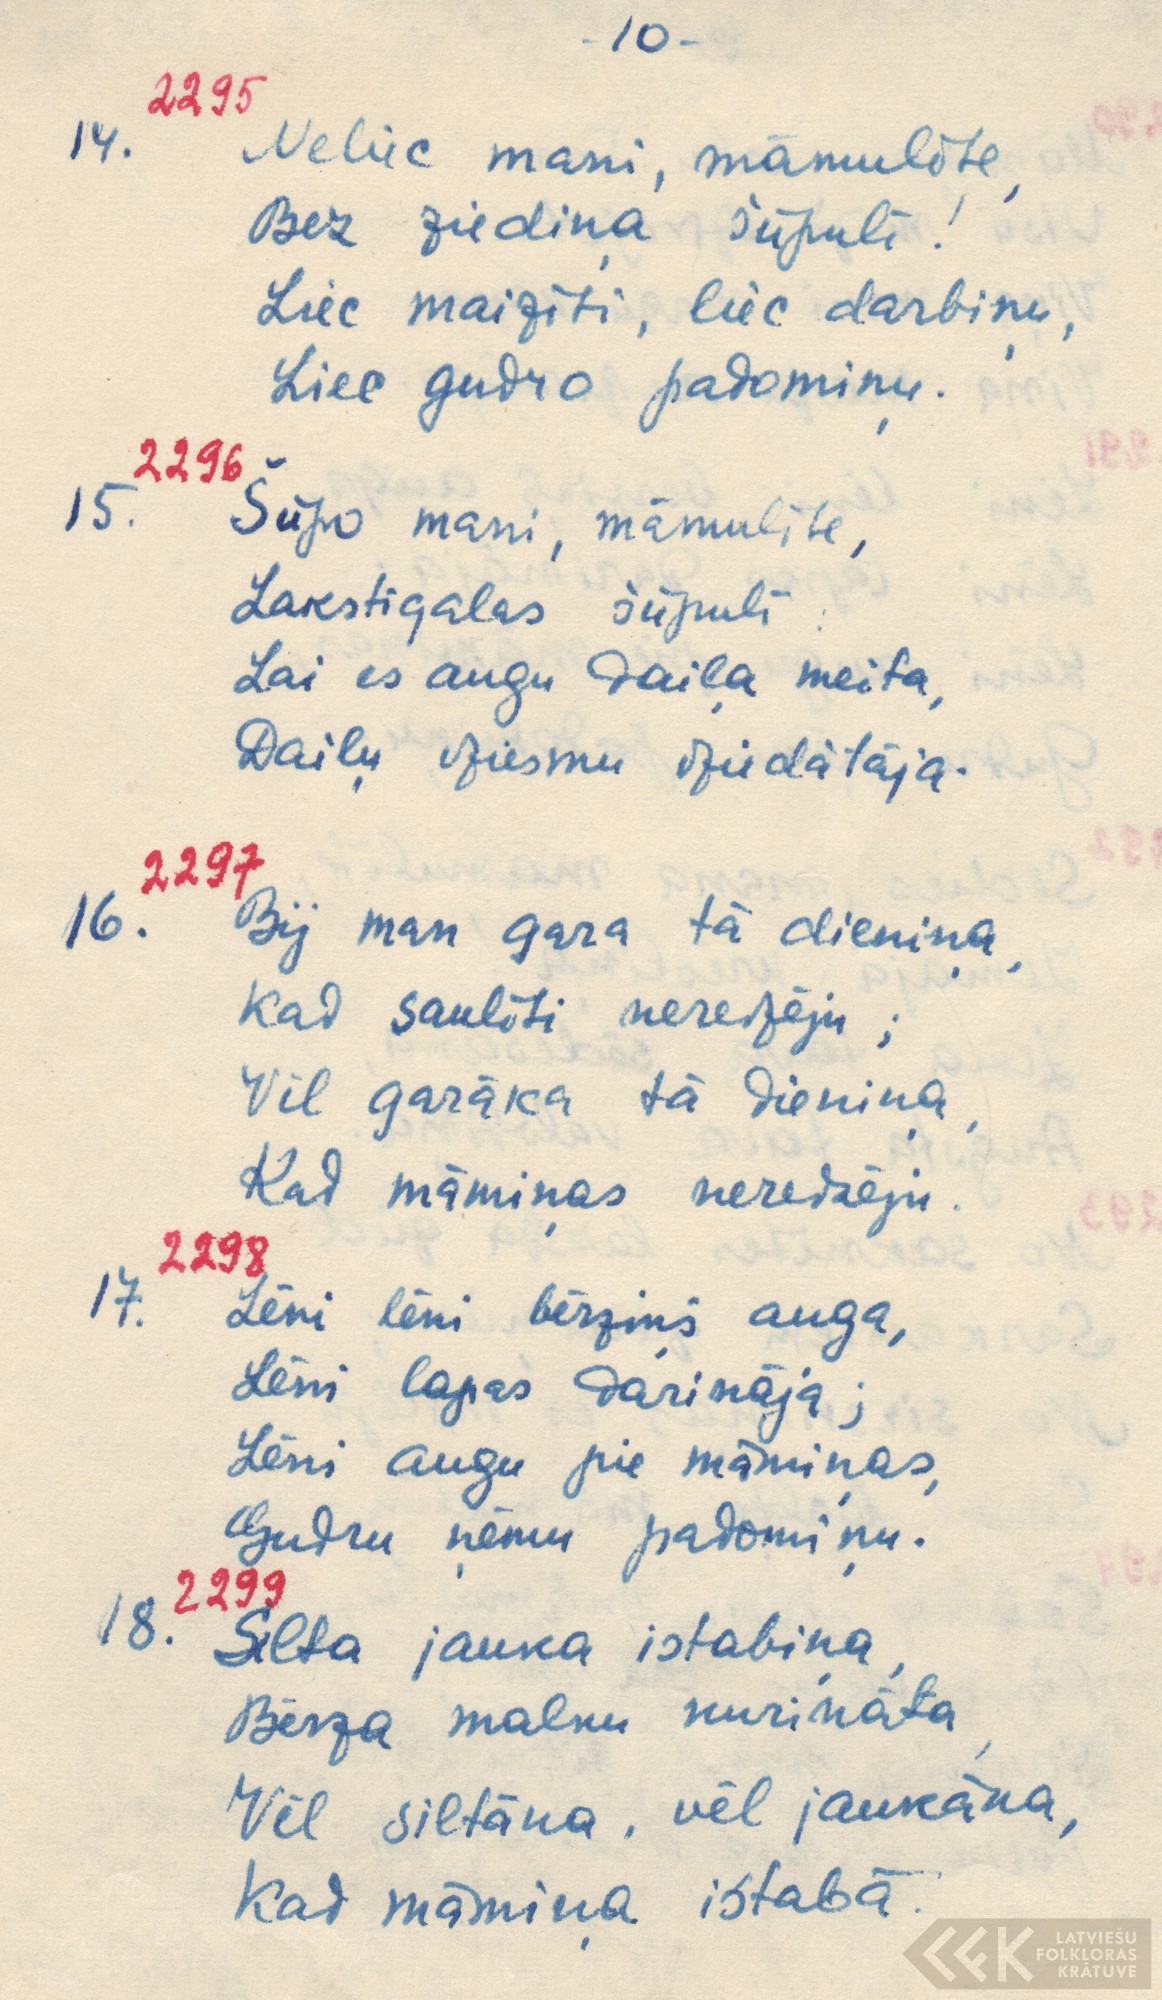 -10-
2295
14. Neliec mani, māmulīte,
Bez ziediņa šūpulī!
Liec maizīti, liec darbiņu,
Liec gudro padomiņu.
2296
15. Šūpo mani, māmulīte,
Lakstigalas šūpulī.
Lai es augu daiļa meita,
Daiļu dziesmu dziedātāja.
2297
16. Bij man gara tā dieniņa,
Kad saulīti neredzēju;
Vēl garāka tā dieniņa,
Kad māmiņas neredzēju.
2298
17. Lēni lēni bērziņš auga,
Lēni lapas darināja;
Lēni augu pie māmiņas,
Gudru ņēmu padomiņu.
2299
18. Silta jauka istabiņa,
Bērza malku kurināta,
Vēl siltāka, vēl jaukāka,
Kad māmiņa istabā.
LATVIEŠU
FOLKLORAS
KRĀTUVE